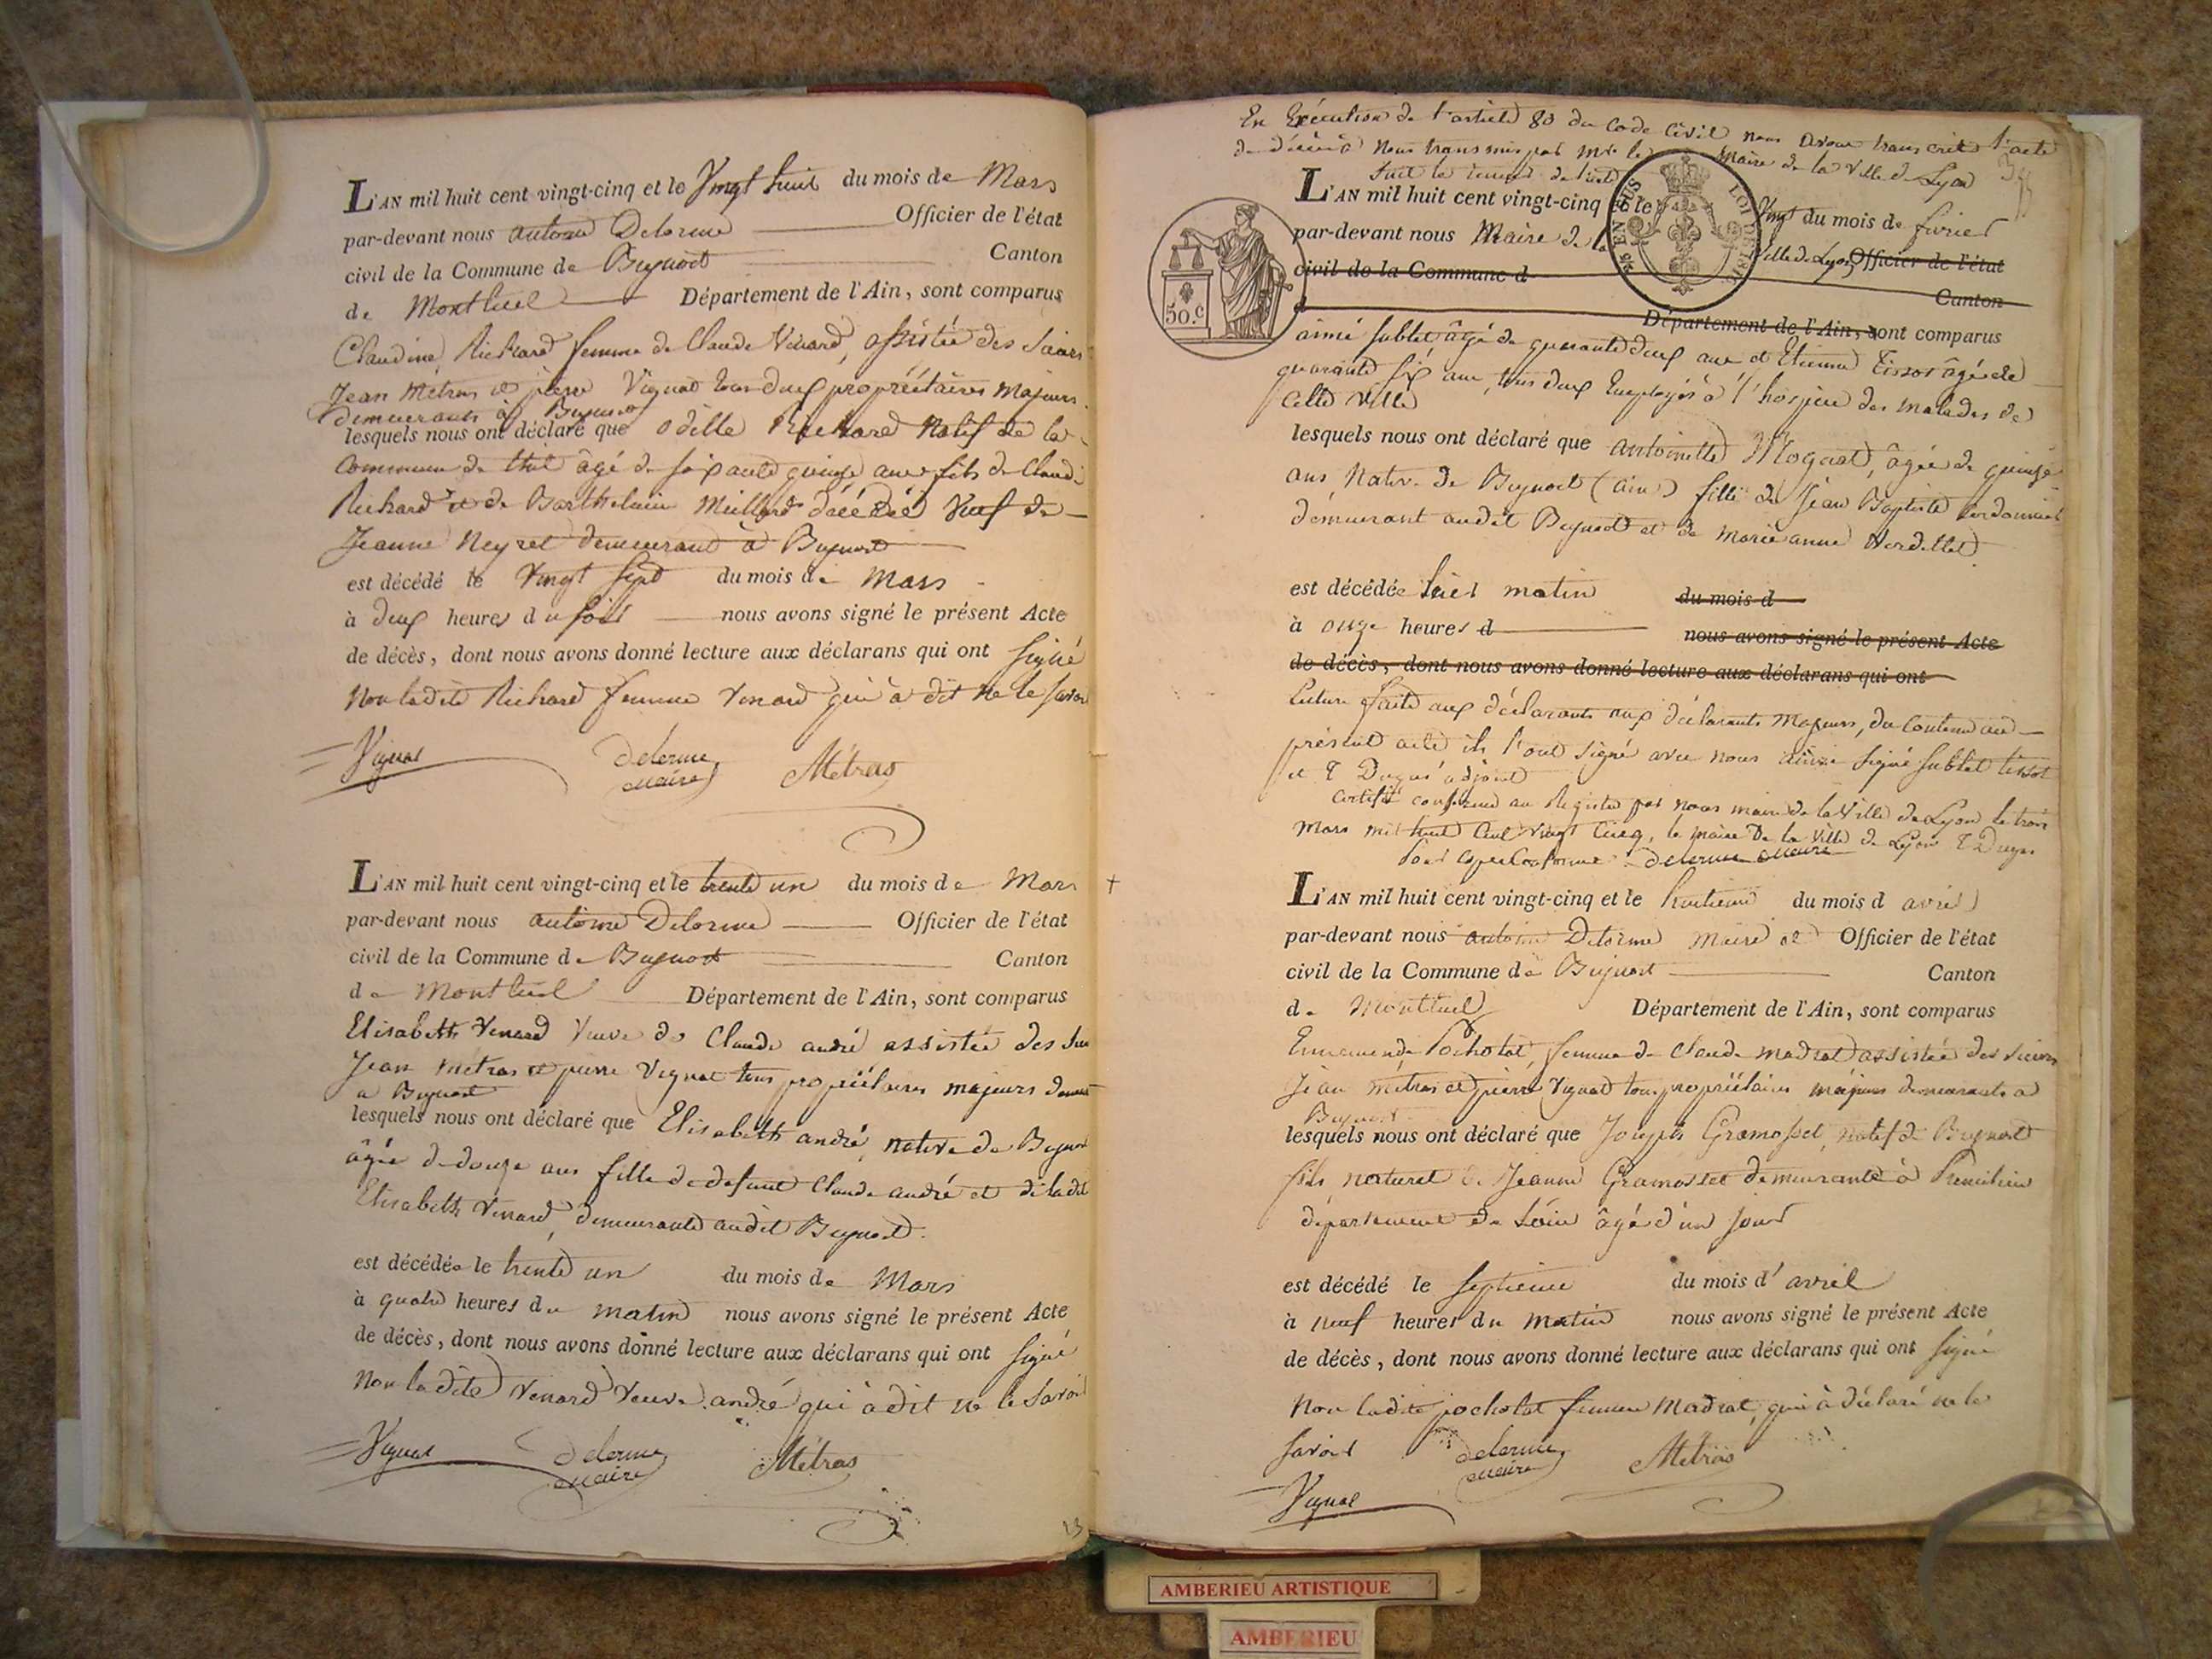 L'AN mil huit cent vingt-cinq et le Vingt huit du mois de Mars
par-devant nous antoine Delorme Officier de l'état
civil de la Commune de Beynost Canton
de Montluel Département de l'Ain, sont comparus
Claudine Richard femme de Claude Venard, assistée des Sieurs
Jean Metras et pierre Vignat tous deux propriétaires Majeurs
demeurants à Beynost
lesquels nous ont déclaré que odille Richard Natif de la
Commune de thil âgé de soixante quinze ans fils de Claude
Richard et de Barthelmie décédé Veuf de
Jeanne Neyret demeurant à Beynost
est décédé le Vingt Sept du mois de Mars
à deux heures du soir nous avons signé le présent Acte
de décès, dont nous avons donné lecture aux déclarans qui ont signé
Non ladite Richard femme Venard qui à dit ne le savoir
Vignat delorme maire Métras
L'AN mil huit cent vingt-cinq et le trente un du mois de Mars
par-devant nous antoine Delorme Officier de l'état
civil de la Commune de Beynost Canton
de Montluel Département de l'Ain, sont comparus
Elisabeth Venard Veuve de Claude andré assistée des Srs
Jean métras et pierre Vignat tous propriétaires majeurs demt
a Beynost
lesquels nous ont déclaré que Elisabeth andré, native de Beynost
âgée de douze ans fille de defunt Claude andré et de ladite
Elisabeth Venard, demeurante audit Beynost.
est décédée le trente un du mois de Mars
à quatre heures du matin nous avons signé le présent Acte
de décès, dont nous avons donné lecture aux déclarans qui ont signé
Non ladite Venard Veuve andré qui à dit ne le savoir
Vignat delorme maire Métras
23
En Exécution de l'article 80 du Code Civil nous avons transcrit l'acte
de décès à nous transmis par Mr le Maire de la Ville de Lyon
suit la teneur de l'acte
L'AN mil huit cent vingt-cinq et le Vingt du mois de fevrier
par-devant nous Maire de la Ville de Lyon Officier de l'état
civil de la Commune d
Canton
d Département de l'Ain, sont comparus
50.C
aimé Sublet, âgé de quarante deux ans et Etienne Tissot âgé de
quarante six ans, tous deux Employés à l'hospice des malades de
Cette Ville
lesquels nous ont déclaré que antoinette Mognat, âgée de quinze
ans Native de Beynost (ain) fille de Jean Baptiste Cordonnier
demeurant audit Beynost et de Marie anne
est décédée hier matin du mois d
à onze heures d nous avons signé le présent Acte
de décès, dont nous avons donné lecture aux déclarans qui ont
Lecture faite aux déclarants aux déclarants Majeurs, du Contenu au
présent acte ils l'ont signé avec nous signé Sublet tissot
et adjoint
Certifié conforme au Registre par nous maire de la Ville de Lyon le trois
Mars mil huit Cent vingt Cinq, le maire De la Ville de Lyon
Pour copie Conforme delorme maire
L'AN mil huit cent vingt-cinq et le huitieme du mois d avril
par-devant nous antoine Delorme Maire et Officier de l'état
civil de la Commune de Beynost Canton
de Montluel Département de l'Ain, sont comparus
Ennemonde Pocholat, femme de Claude Madrat assistée des Sieurs
Jean métras et pierre Vignat tous propriétaires majeurs demeurants a
Beynost
lesquels nous ont déclaré que Joseph Gramosset, Natif de Beynost
fils naturel de Jeanne Gramosset demeurante à
département de l'ain âgé d'un jour
est décédé le Septieme du mois d'avril
à neuf heures du Matin nous avons signé le présent Acte
de décès, dont nous avons donné lecture aux déclarans qui ont signé
Non ladite pocholat femme Madrat, qui à déclaré ne le
savoir delorme maire Métras
Vignat
AMBERIEU ARTISTIQUE
AMBERIEU